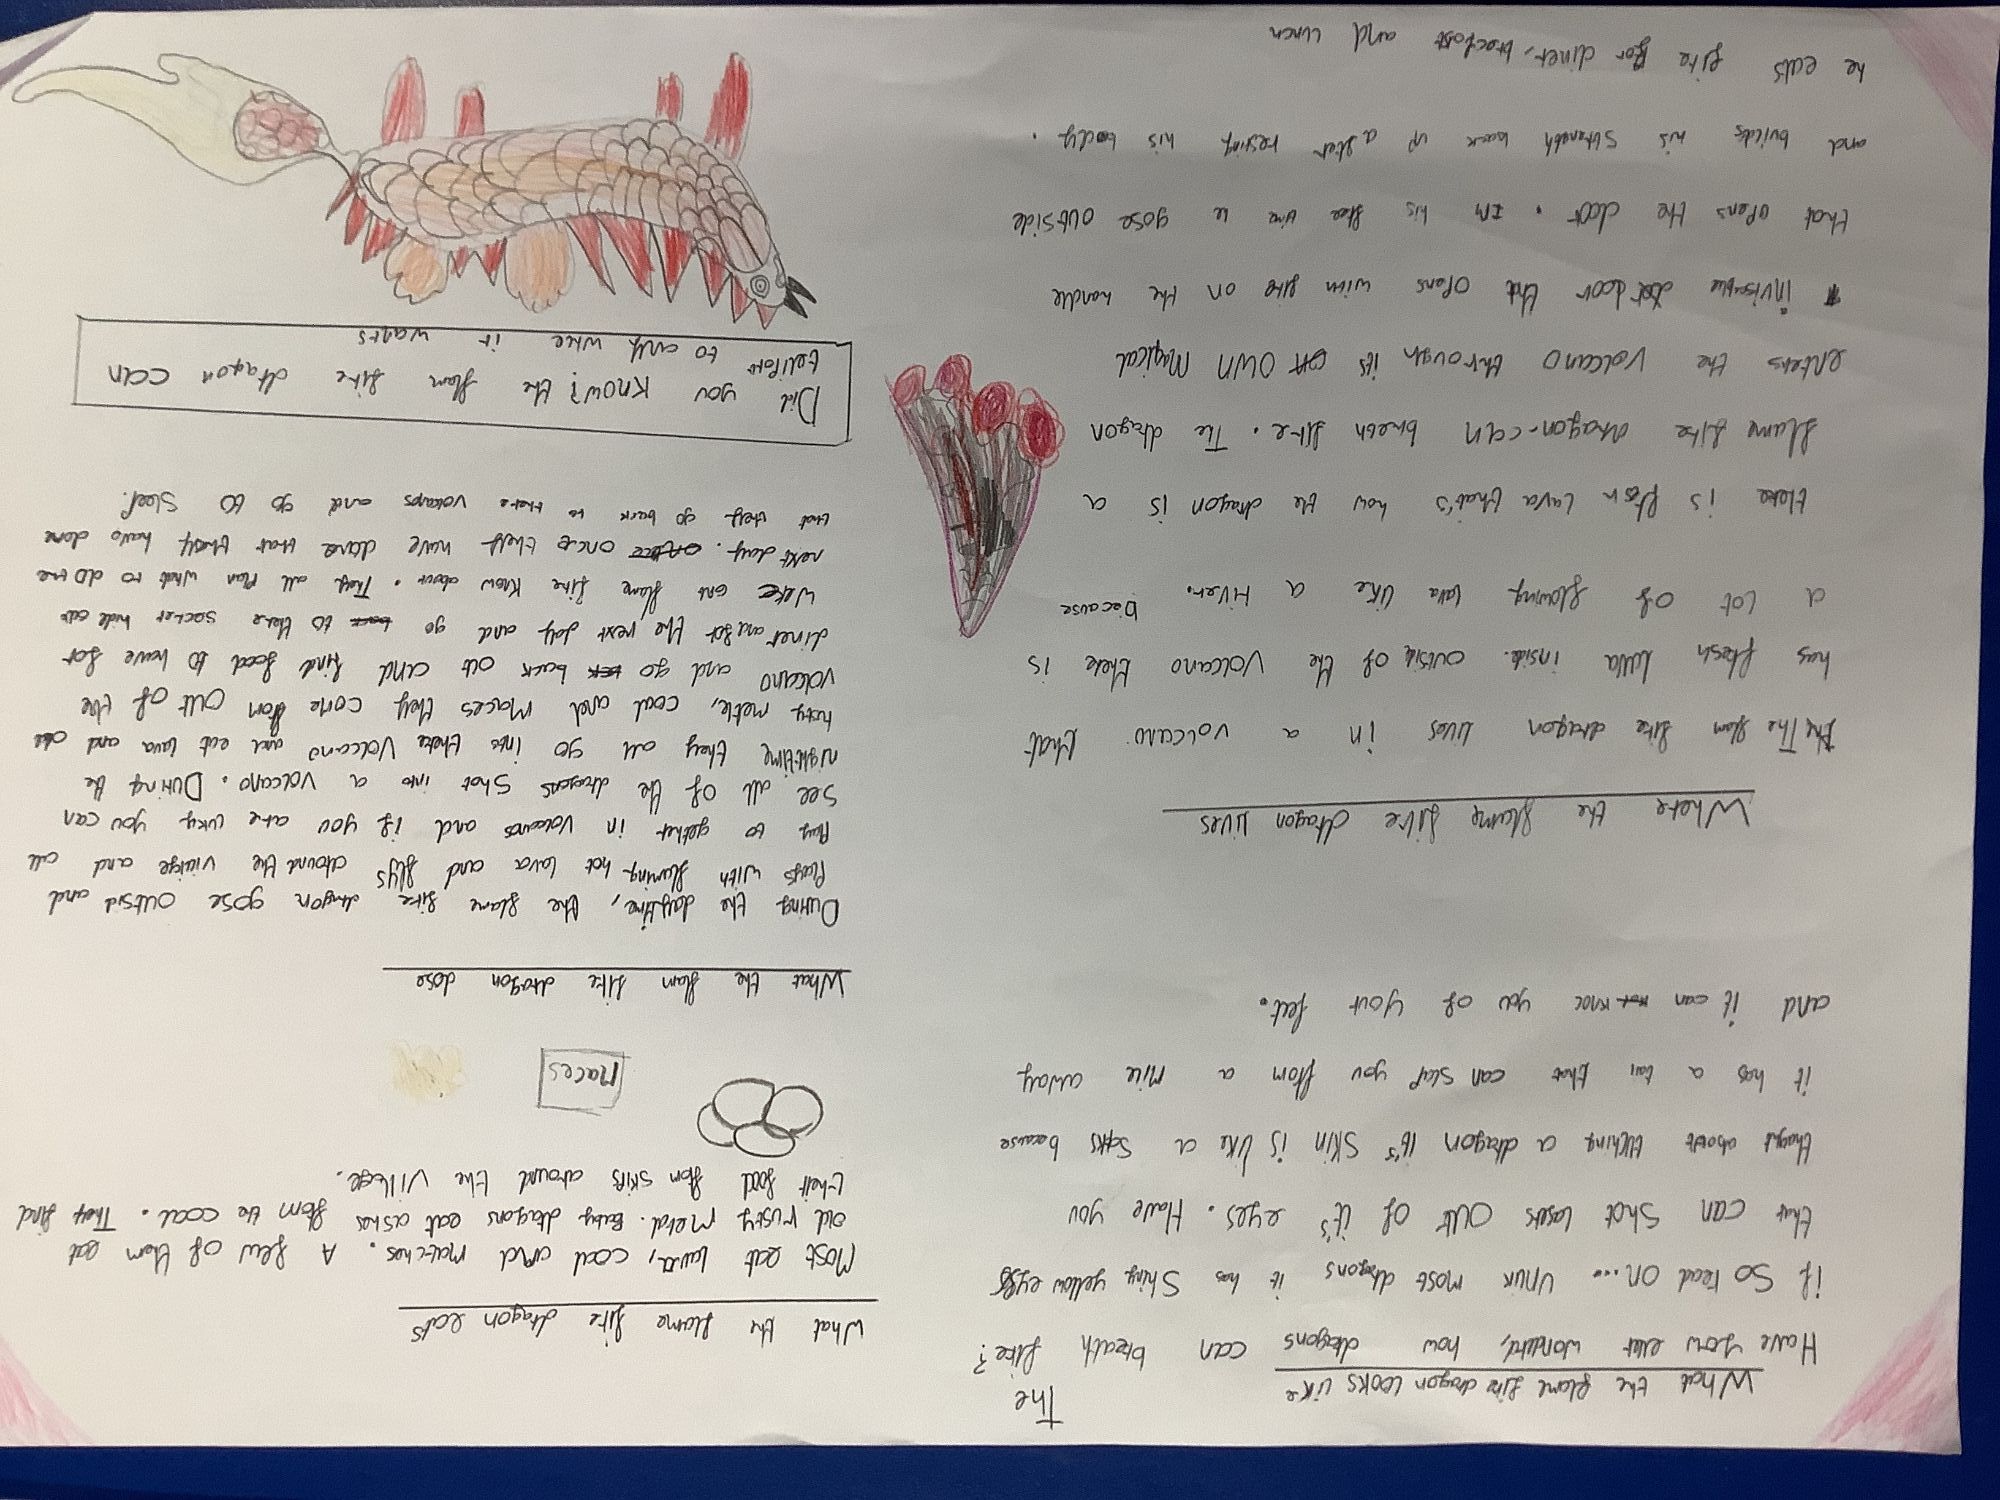 The
What the flame fire dragon looks like
Have you ever wonderd, how dragons can breath fire?
if so read on... unlik most dragons it has shiny yellow eyes
that can shot lasers out of it's eyes. Have you
thoght about tuching a dragon it's skin is like a because
it has a tail that can slap you from a mile away
and it can knoc you of your feet.
Where the flame fire dragon lives
The flam fire dragon lives in a volcano that
has flesh lava inside. outside of the volcano there is
a lot of flowing lava like a river. because
there is flowing lava that's how the dragon is a
flame fire dragon-can breath fire. The dragon
enters the volcano through its own magical
invisible door that opens with fire on the handle
that opens the door. In his free time he gose outside
and builds his strength back up after resting his body.
he eats fire for diner, brecfast and lunch
What the flame fire dragon eats
Most eat lava, coal and matches. A few of them eat
old rusty metal. Baby dragons eat ashes from the coal. They find
their food from skips around the village.
Maces
What the flam fire dragon dose
During the daytime, the flame fire dragon gose outsid and
plays with flaming hot lava and flys around the vilarge and all
play to gether in volcanos and if you are luky you can
see all of the dragons shot into a volcano. During the
nighttime they all go into there volcano and eat lava and
rusty metle, coal and maces they come from out of the
volcano and go back out and find food to have for
diner and for the next day and go to there sacret hide out
were ont flame fire know about. They all plan what to do the
next day. once they have done that they have done
that they go back to there volcanos and go to sleep.
Did you know? the flam fire dragon can
teliport to any where it wants